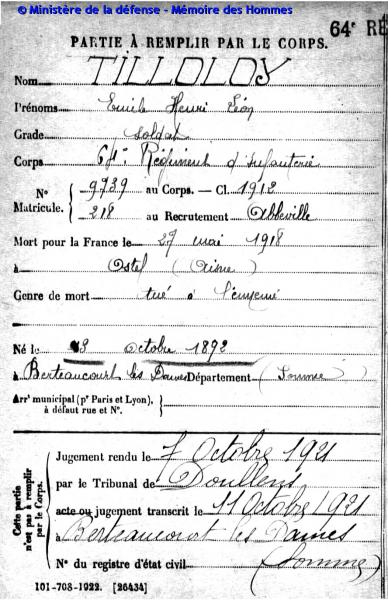 © Ministère de la défense - Mémoire des Hommes
64e RE
PARTIE À REMPLIR PAR LE CORPS.
Nom TILLOLOY
Prénoms Emile Henri Léon
Grade soldat
Corps 64e Régiment d'infanterie
N° Matricule. { 9739 au Corps. — Cl. 1912
218 au Recrutement Abbeville
Mort pour la France le 27 mai 1918
à Ostel (Aisne)
Genre de mort tué à l'ennemi
Né le 3 octobre 1892
à Berteaucourt les Dames Département (Somme)
Arrt municipal (pr Paris et Lyon),
à défaut rue et N°.
Cette partie n'est pas à remplir par le Corps.
Jugement rendu le 7 Octobre 1921
par le Tribunal de Doullens
acte ou jugement transcrit le 11 Octobre 1921
à Berteaucourt les Dames
(Somme)
N° du registre d'état civil
101-708-1922. [26434]